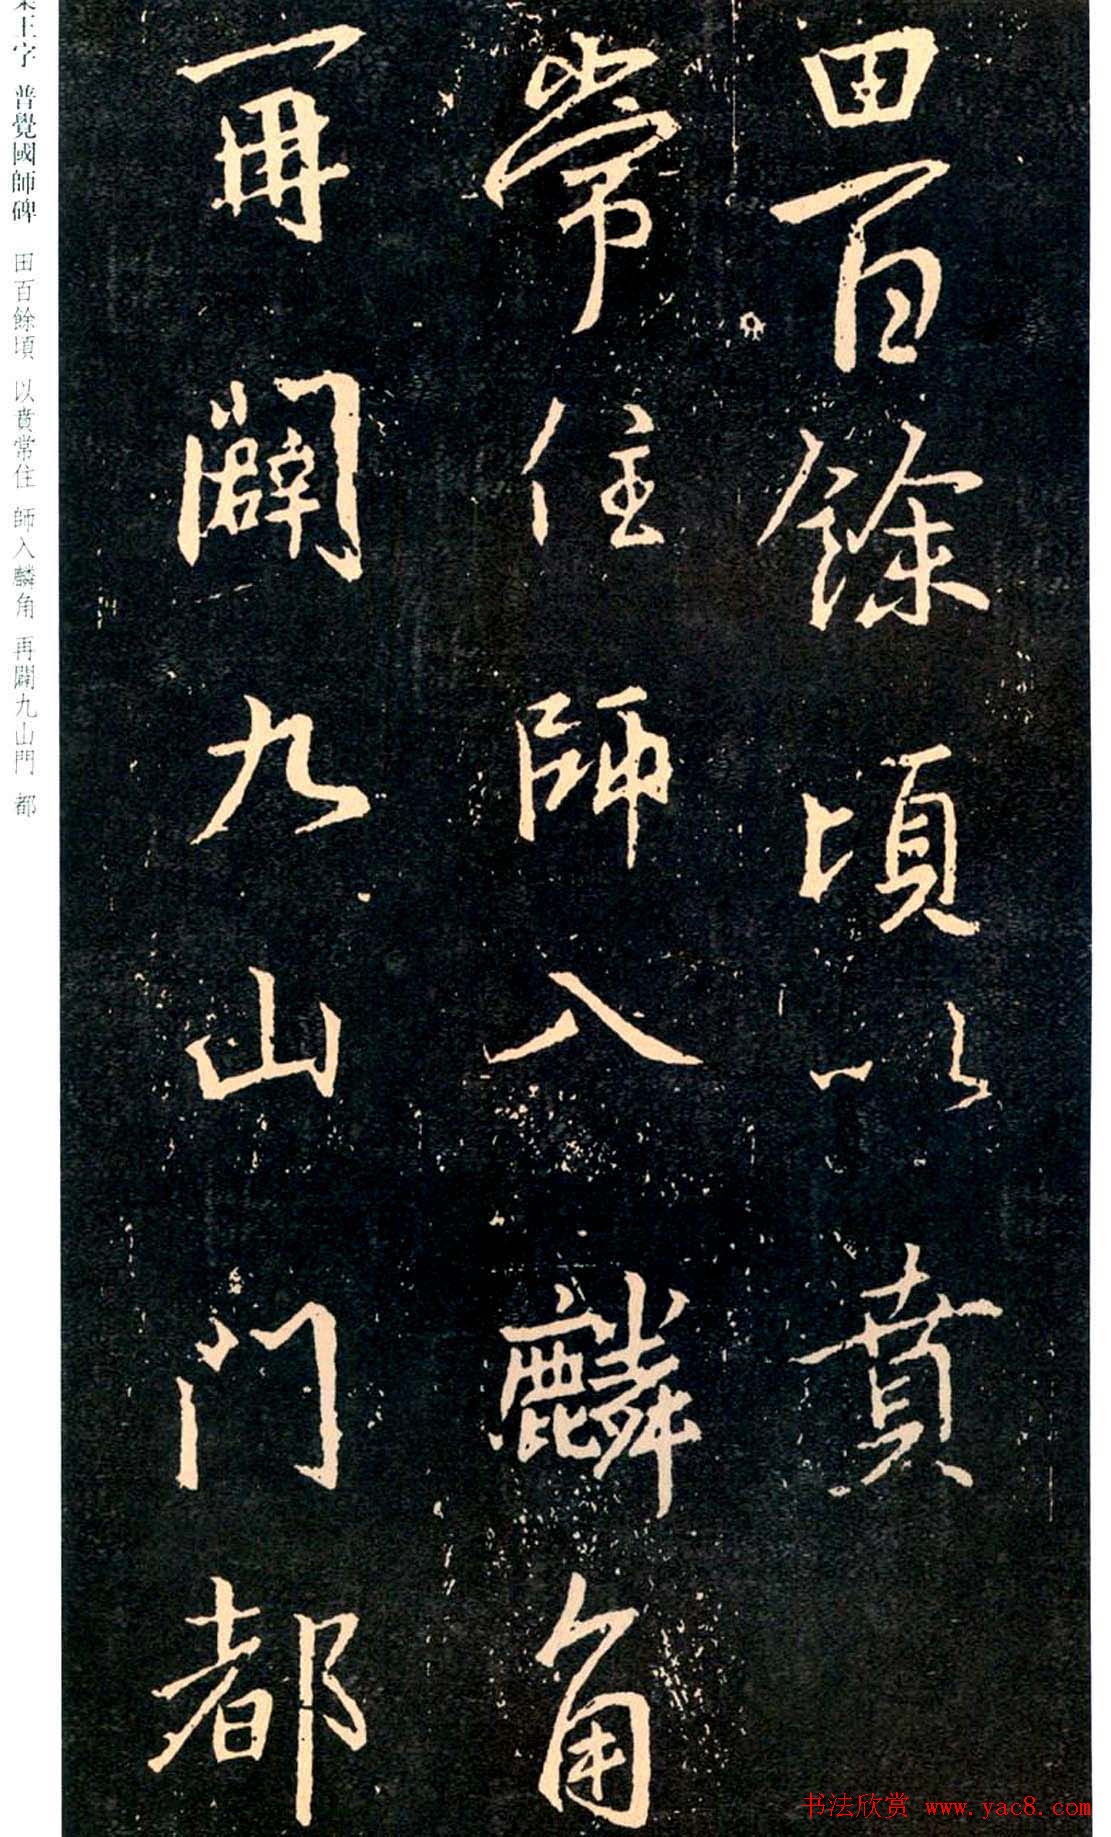 田百餘頃以賁
常住師入麟角
再闢九山門都
王字 普覺國師碑 田百餘頃 以賁常住 師入麟角 再闢九山門 都
书法欣赏 www.yac8.com